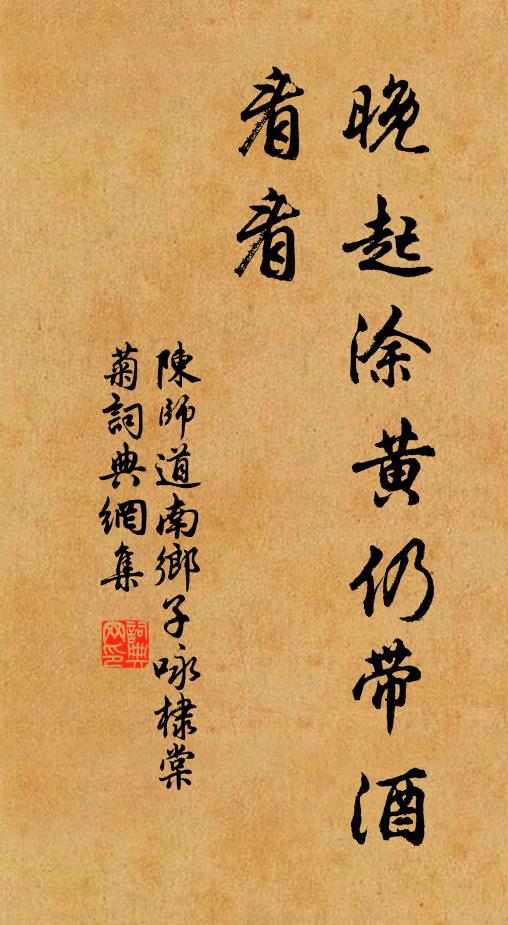 晚起涂黄仍带酒
看看
陳師道南鄉子咏棣棠
菊詞典網集
詞典
网印